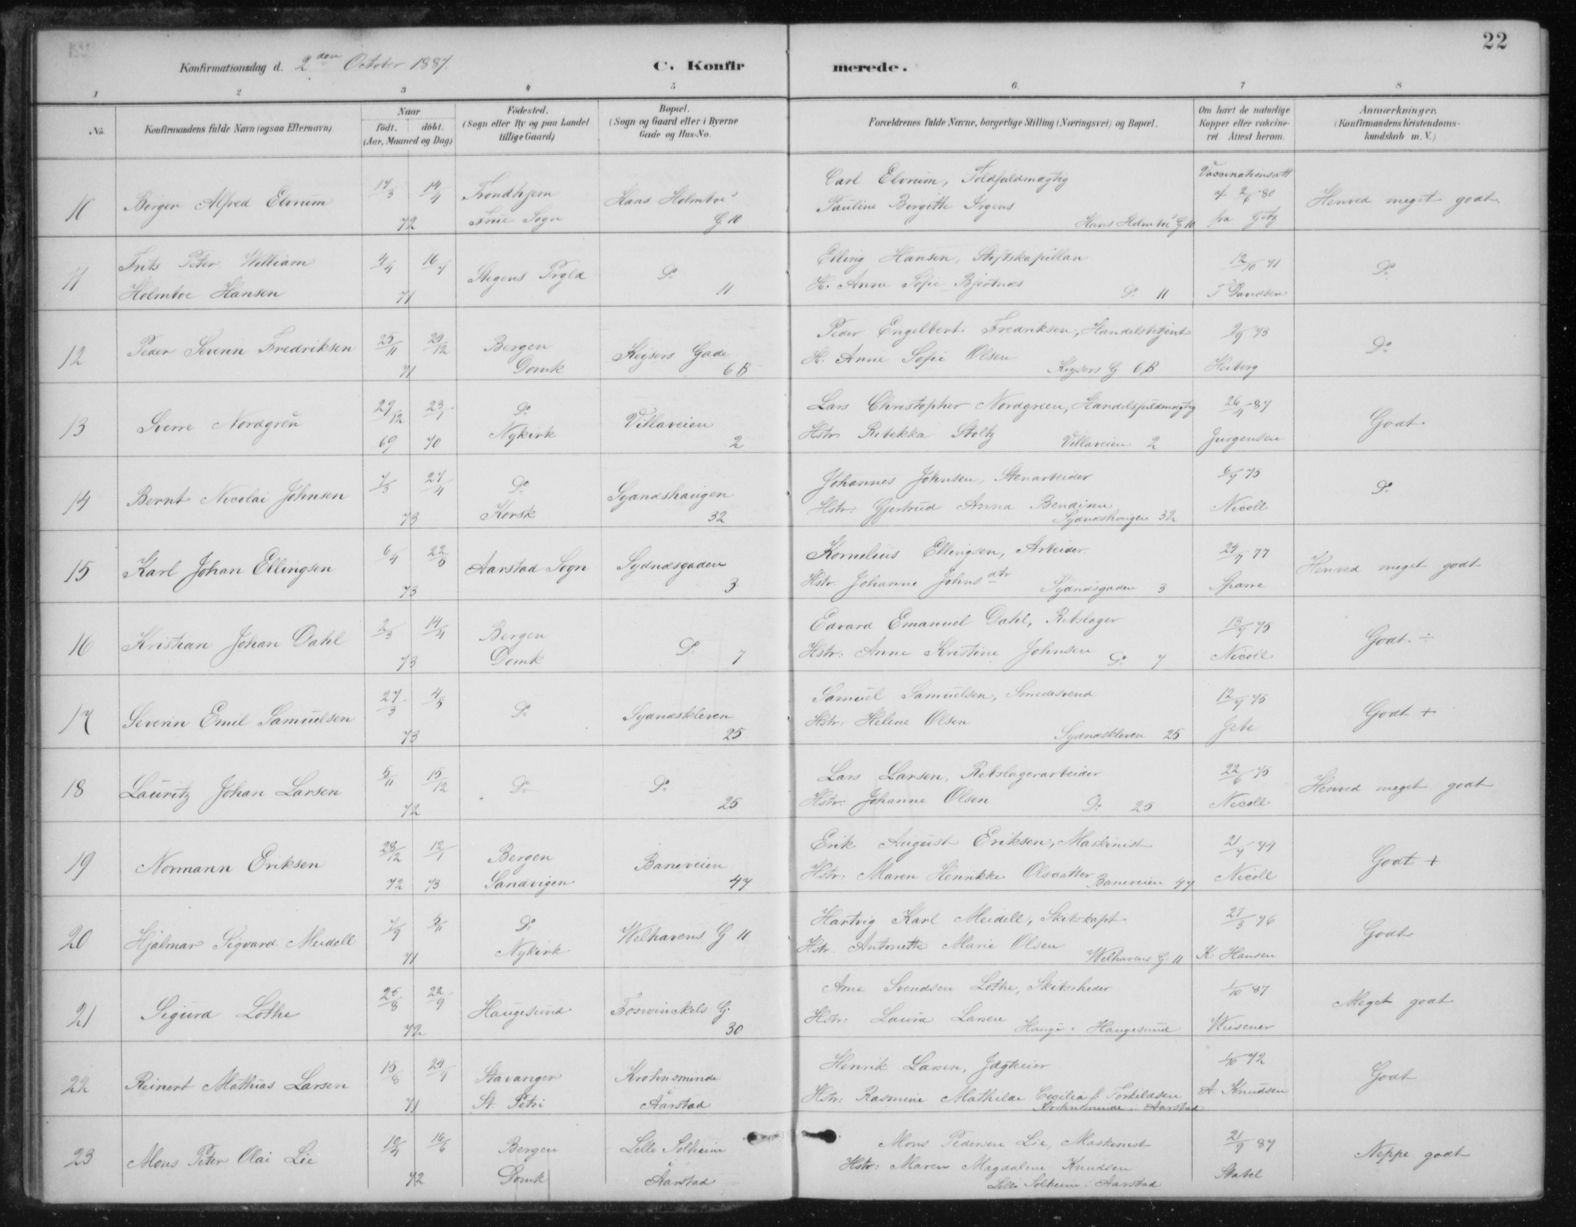 22
Konfirmationsdag d. 2den October 1887.
C. Konfirmerede.
1 2 3 4 5 6 7 8
No.
Konfirmandens fulde Navn (ogsaa Efternavn)
Naar
født. døbt.
(Aar, Maaned og Dag)
Fødested.
(Sogn eller By og paa Landet
tillige Gaard)
Bopæl.
(Sogn og Gaard eller i Byerne
Gade og Hus-No.
Forældrenes fulde Navne, borgerlige Stilling (Næringsvei) og Bopæl.
Om havt de naturlige
Kopper eller vakcine-
ret Attest herom.
Anmærkninger.
(Konfirmandens Kristendoms-
kundskab m. V.)
Birger Alfred Elvrum
14/3 14/4
72
Trondhjem
Frue Sogn
Hans Holmboes
G 10
Carl Elvrum, Toldfuldmægtig
Pauline Bergitte
Hans Holmboes G 10
Vaccinationsatt
fra
Henved meget godt
11
Fritz Peter William
Holmboe Hansen
4/4 16/7
71
Stegens Prgld
Do
11
Elling Hansen, Stiftskapellan
H. Anne Sofie
Do 11
Do
12
Peder Severin Fredriksen
25/11 29/12
71
Bergen
Domk
Keysers Gade
6B
Peder Engelbert Fredriksen, Handelsbetjent
H. Anne Sofie Olsen
Keysers G 6B
Heiberg
Do
13
Sverre Nordgren
29/12 23/1
69 70
Do
Nykirk
Villaveien
2
Lars Christopher Nordgreen, Handelsfuldmægtig
Hstr. Rebekka Stoltz
Villaveien 2
26/4 87
Jurgensen
Godt
14
Bernt Nicolai Johnsen
7/3 27/4
73
Do
Korsk
Sydnæshaugen
32
Johannes Johnsen, Stenarbeider
Hstr. Gjertrud Anna Bendixen
Sydneshaugen 32
6/9 75
Nicoll
Do
15
Karl Johan Ellingsen
6/4 22/5
73
Aarstad Sogn
Sydnæsgaden
3
Kornelius Ellingsen, Arbeider
Hstr. Johanne Johnsdtr
Sydnæsgaden 3
24/7 77
Sparre
Henved meget godt
16
Kristian Johan Dahl
2/3 14/4
73
Bergen
Domk
Do 7
Edvard Emanuel Dahl, Rebslager
Hstr. Anne Kristine Johnsen
Do 7
13/9 75
Nicoll
Godt. ÷
17
Severin Emil Samuelsen
27/3 4/5
73
Do
Sydnæskleven
25
Samuel Samuelsen, Smedesvend
Hstr. Helene Olsen
Sydnæskleven 25
12/9 75
Godt +
18
Lauritz Johan Larsen
5/11 15/12
72
Do
Do
25
Lars Larsen, Rebslagerarbeider
Hstr. Johanne Olsen
Do 25
22/6 75
Nicoll
Henved meget godt
19
Normann Eriksen
28/12 12/1
72 73
Bergen
Sandvigen
Baneveien
47
Erik August Eriksen, Maskinist
Hstr. Maren Henrikke Olsdatter
Baneveien 47
Nicoll
Godt +
20
Hjalmar Sigvard Meidell
7/9 5/11
71
Do
Nykirk
Welhavens G 11
Hartvig Karl Meidell, Skibskapt
Hstr. Antonette Marie Olsen
Welhavens G 11
21/3 76
K. Hansen
Godt
21
Sigurd Lothe
25/8 22/9
72
Haugesund
Foswinckels G.
30
Arne Svendsen Lothe, Skibsrheder
Hstr. Laura Larsen
Hauge i Haugesund
1/10 87
Wiesener
Meget godt
22
Reinert Mathias Larsen
15/8 24/9
71
Stavanger
St. Petri
Krohnsminde
Aarstad
Henrik Larsen, Jægtleier
Hstr. Rasmine Mathilde Cecilia f. Torkildsen
Krohnsminde i Aarstad
1/10 72
A. Knudsen
Godt
23
Mons Peter Olai Lie
16/6
72
Bergen
Domk
Lille Solheim
Aarstad
Mons Pedersen Lie, Maskinist
Hstr. Maren Magdalene Knudsen
Lille Solheim i Aarstad
21/9 87
Stabel
Neppe godt